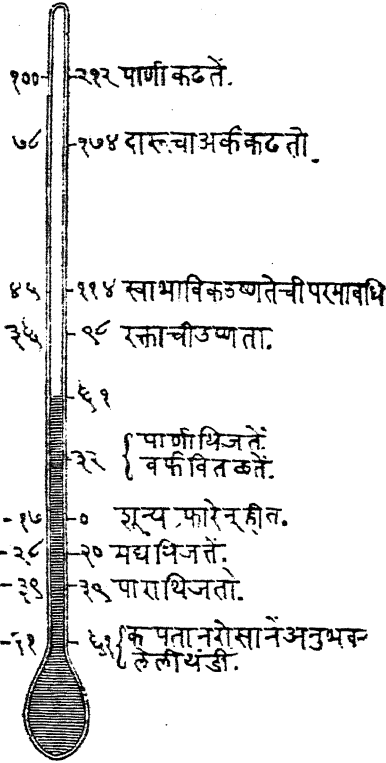 १०० २१२ पाणी कढतें.
७८ १७४ दारूचा अर्क कढतो.
४५ ११४ स्वाभाविक उष्णतेची परमावधि
३६ ९८ रक्ताची उष्णता.
६१
३२ पाणी थिजतें
बर्फ वितळतें.
-१७ ० शून्य फारेनहीत.
-२८ २० मद्य थिजतें.
-३९ ३९ पारा थिजतो.
-५१ ६१ कपतान रोसानें अनुभव-
लेली थंडी.